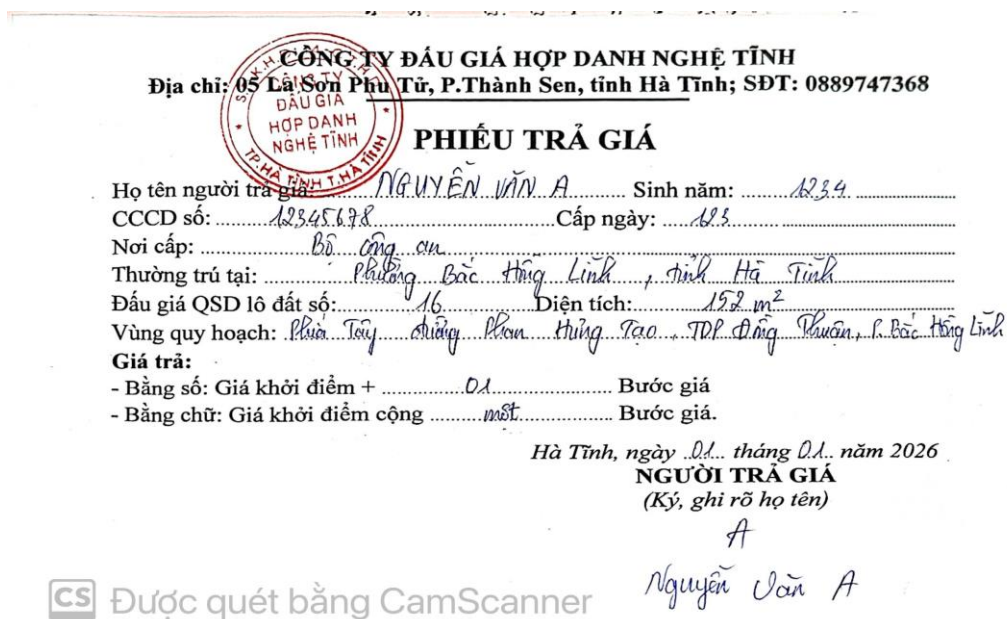 CÔNG TY ĐẤU GIÁ HỢP DANH NGHỆ TĨNH
Địa chỉ: 05 La Sơn Phu Tử, P.Thành Sen, tỉnh Hà Tĩnh; SĐT: 0889747368
CÔNG TY
ĐẤU GIÁ
HỢP DANH
NGHỆ TĨNH
TP.HÀ TĨNH T.HÀ TĨNH
PHIẾU TRẢ GIÁ
Họ tên người trả giá: NGUYỄN VĂN A Sinh năm: 1234
CCCD số: 12345678 Cấp ngày: 123
Nơi cấp: Bộ công an
Thường trú tại: Phường Bắc Hồng Lĩnh, tỉnh Hà Tĩnh
Đấu giá QSD lô đất số: 16 Diện tích: 152 m²
Vùng quy hoạch: Phía Tây đường Phan Hưng Tạo, TDP Đồng Thuận, P. Bắc Hồng Lĩnh
Giá trả:
- Bằng số: Giá khởi điểm + 01 Bước giá
- Bằng chữ: Giá khởi điểm cộng một Bước giá.
Hà Tĩnh, ngày 01 tháng 01 năm 2026
NGƯỜI TRẢ GIÁ
(Ký, ghi rõ họ tên)
A
Nguyễn Văn A
CS Được quét bằng CamScanner